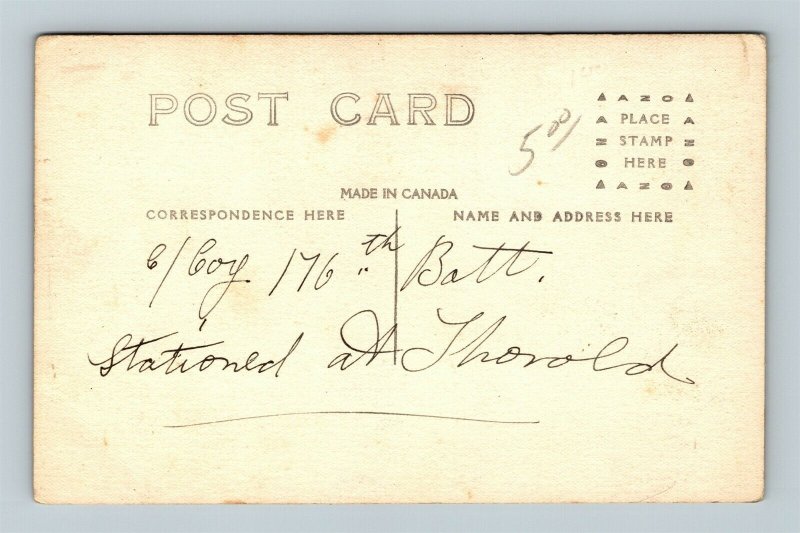 POST CARD
5⁰/
AZO
PLACE
STAMP
HERE
AZO
AZO
AZO
MADE IN CANADA
CORRESPONDENCE HERE
NAME AND ADDRESS HERE
C/Coy 176th Batt.
Stationed at Thorold